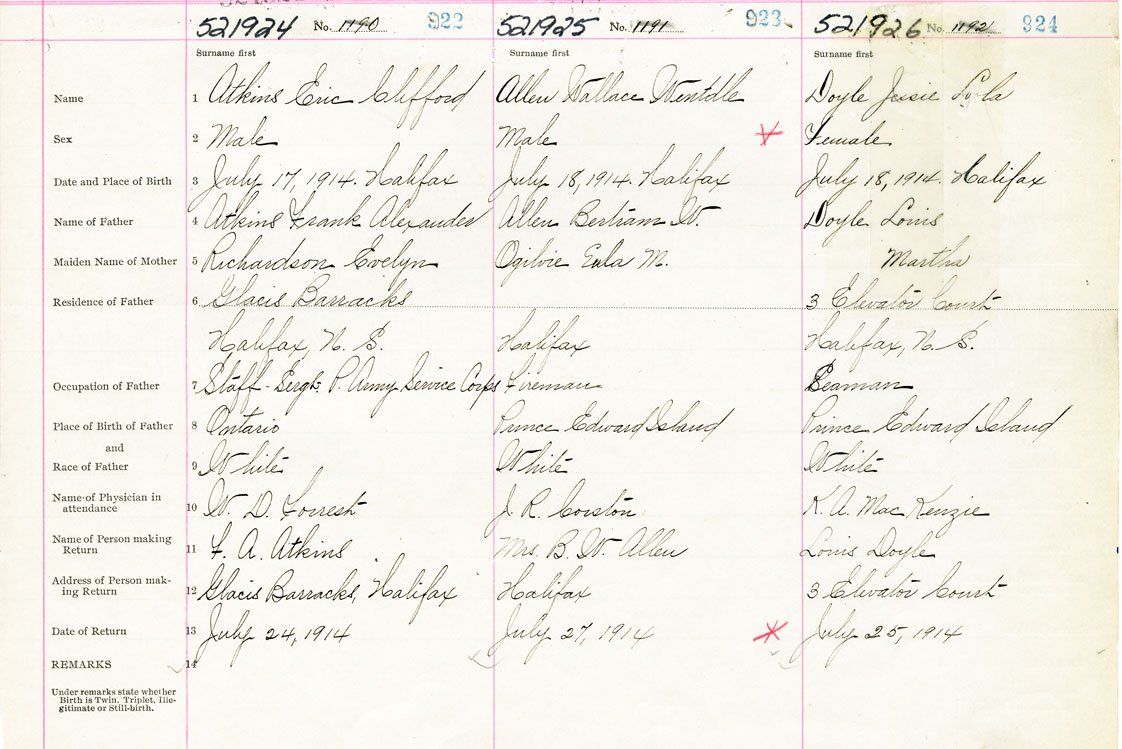 521924 No. 1190 922 521925 No. 1191 923 521926 No. 1192 924
Surname first Surname first Surname first
Name 1 Atkins Eric Clifford Allen Wallace Wentdle Doyle Jessie Lola
Sex 2 Male Male Female
Date and Place of Birth 3 July 17, 1914. Halifax July 18, 1914. Halifax July 18, 1914. Halifax
Name of Father 4 Atkins Frank Alexander Allen Bertram W. Doyle Louis
Maiden Name of Mother 5 Richardson Evelyn Ogilvie Eula M. Martha
Residence of Father 6 Glacis Barracks 3 Elevator Court
Halifax, N. S. Halifax Halifax, N. S.
Occupation of Father 7 Staff-Sergt. P. Army Service Corps Fireman Seaman
Place of Birth of Father 8 Ontario Prince Edward Island Prince Edward Island
and
Race of Father 9 White White White
Name of Physician in
attendance 10 W. D. Forrest J. R. Corston K. A. MacKenzie
Name of Person making
Return 11 F. A. Atkins Mrs. B. W. Allen Louis Doyle
Address of Person mak-
ing Return 12 Glacis Barracks, Halifax Halifax 3 Elevator Court
Date of Return 13 July 24, 1914 July 27, 1914 July 25, 1914
REMARKS 14
Under remarks state whether
Birth is Twin, Triplet, Ille-
gitimate or Still-birth.